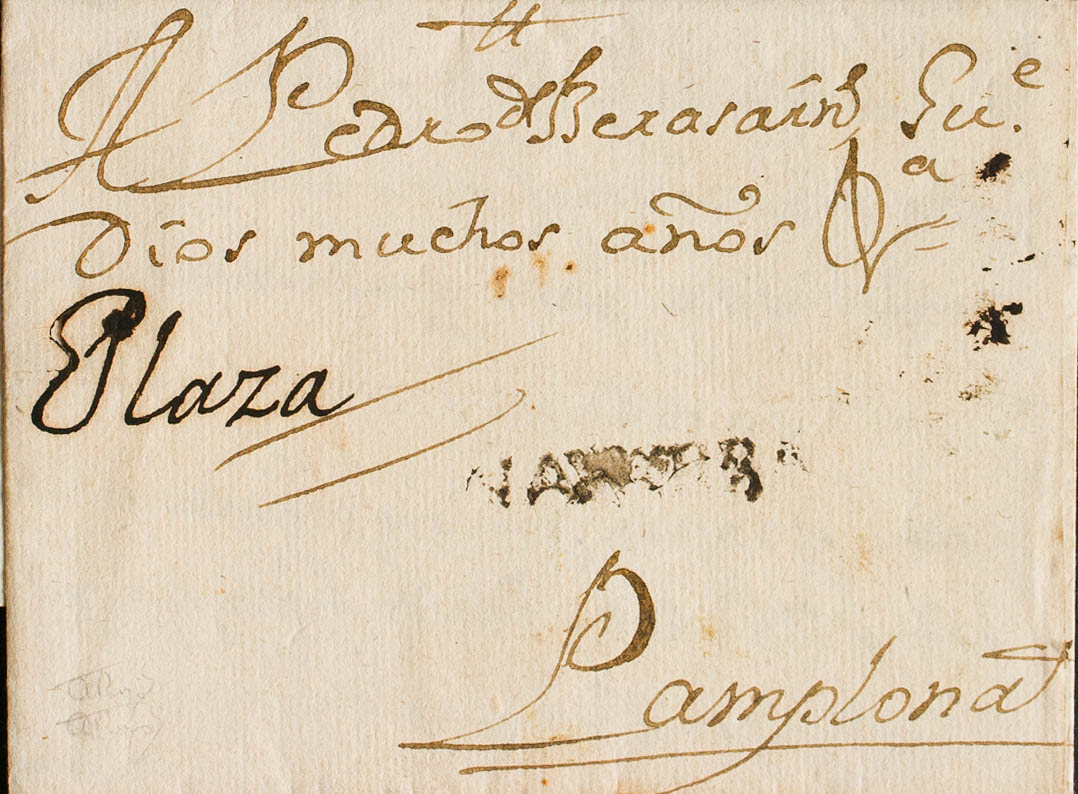 A Pedro de Berasáin Gu.e
Dios muchos años
Plaza
NAVARRA
Pamplona